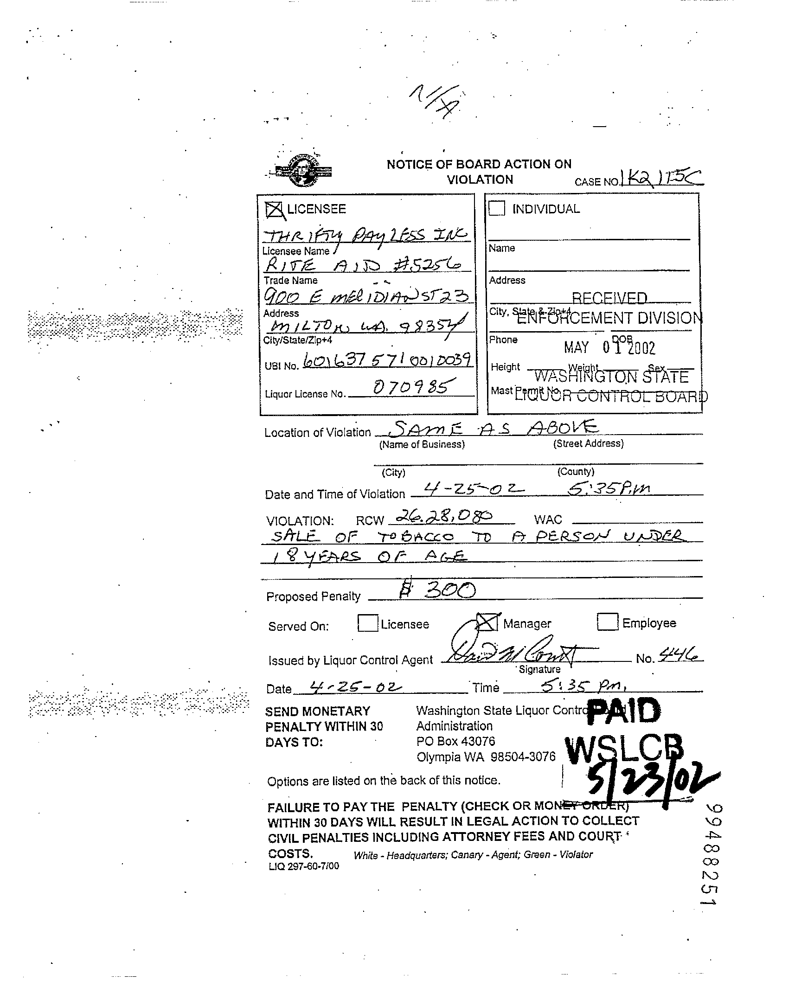 N/A
NOTICE OF BOARD ACTION ON
VIOLATION
CASE NO. 1K2115C
LICENSEE
THRIFTY PAYLESS INC
Licensee Name
RITE AID #5256
Trade Name
900 E MERIDIAN ST 23
Address
MILTON, WA. 98354
City/State/Zip+4
UBI No. 601637571 0010039
Liquor License No. 070985
INDIVIDUAL
Name
Address
RECEIVED
City, State & Zip+4
ENFORCEMENT DIVISION
Phone
DOB
MAY 01 2002
Height Weight Sex
WASHINGTON STATE
Mast Permit No.
LIQUOR CONTROL BOARD
Location of Violation SAME AS ABOVE
(Name of Business) (Street Address)
(City) (County)
Date and Time of Violation 4-25-02 5:35 P.M
VIOLATION: RCW 26.28,080 WAC
SALE OF TOBACCO TO A PERSON UNDER
18 YEARS OF AGE
Proposed Penalty $ 300
Served On: Licensee Manager Employee
Issued by Liquor Control Agent No. 446
Signature
Date 4-25-02 Time 5:35 Pm,
SEND MONETARY
PENALTY WITHIN 30
DAYS TO:
Washington State Liquor Control
Administration
PO Box 43076
Olympia WA 98504-3076
PAID
WSLCB
5/23/02
Options are listed on the back of this notice.
FAILURE TO PAY THE PENALTY (CHECK OR MONEY ORDER)
WITHIN 30 DAYS WILL RESULT IN LEGAL ACTION TO COLLECT
CIVIL PENALTIES INCLUDING ATTORNEY FEES AND COURT
COSTS. White - Headquarters; Canary - Agent; Green - Violator
LIQ 297-60-7/00
99488251